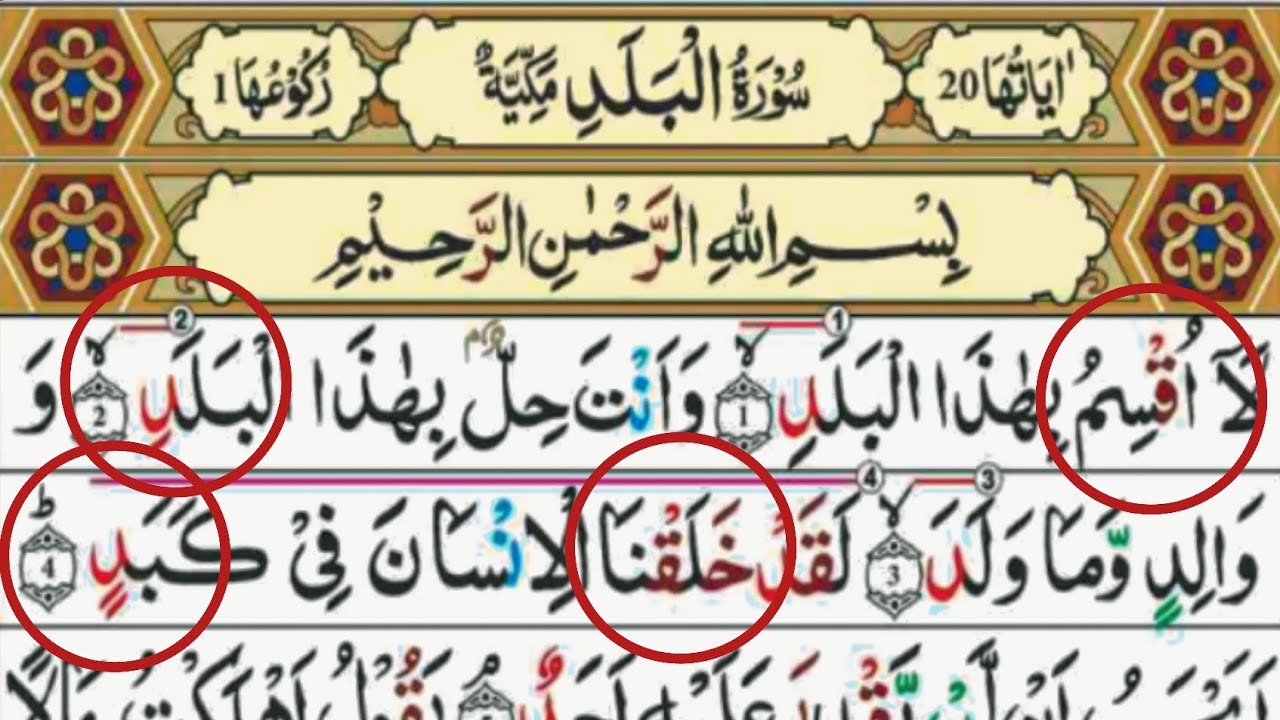 اٰيَاتُهَا 20 سُوْرَةُ الْبَلَدِ مَكِّيَّةٌ رُكُوْعُهَا 1
بِسْمِ اللهِ الرَّحْمٰنِ الرَّحِيْمِ
لَآ اُقْسِمُ بِهٰذَا الْبَلَدِ 1 وَاَنْتَ حِلٌّ بِهٰذَا الْبَلَدِ 2 وَ
وَالِدٍ وَّمَا وَلَدَ 3 لَقَدْ خَلَقْنَا الْاِنْسَانَ فِيْ كَبَدٍ 4